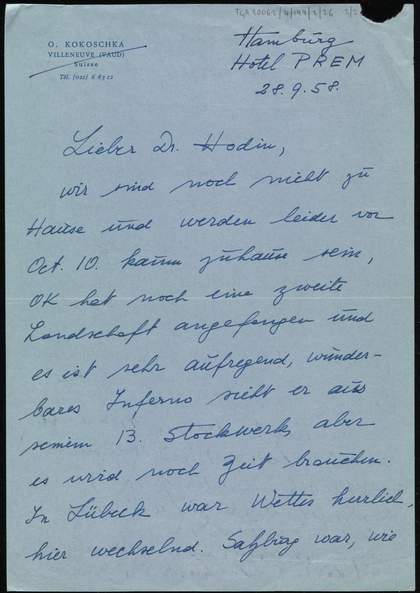 TGA 20062/4/144/2/26 1/2
O. KOKOSCHKA
VILLENEUVE (VAUD)
Suisse
Tél. (021) 6 83 22
Hamburg
Hotel PREM
28.9.58.
Lieber Dr. Hodin,
wir sind noch nicht zu
Hause und werden leider vor
Oct. 10. kaum zuhause sein,
OK hat noch eine zweite
Landschaft angefangen und
es ist sehr aufregend, wunder-
bares Inferno sieht er aus
seinem 13. Stockwerk, aber
es wird noch Zeit brauchen.
In Lübeck war Wetter herrlich,
hier wechselnd. Salzburg war, wie